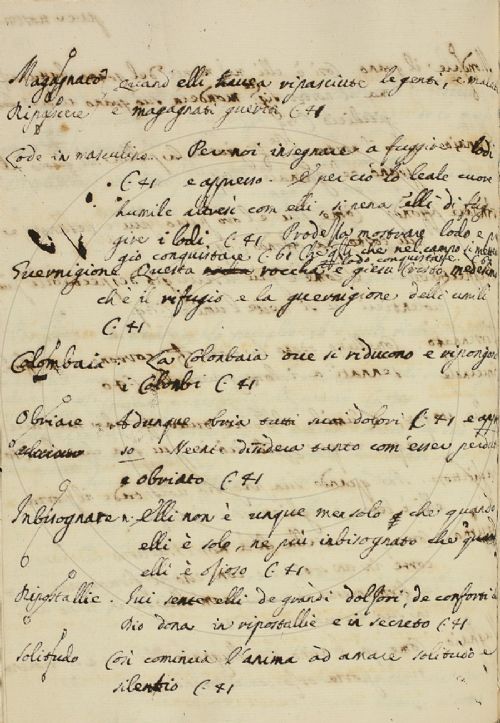 Magagnato quand elli havea ripasciute le genti, e malati
Ripascere e magagnati gueriti C. 41
Lode in masculino. Per noi insegnare a fuggire i lodi
C. 41 e appresso. E per ciò lo leale cuore
humile altresi com elli, si pena elli di fug
gire i lodi. C. 41 Prode la mostrare lodo e pre
gio conquistare C. 61 che nel campo si mette
lodo conquistare. C. 62
Guernigione Questa rocha è giesu Christo medesimo
ch è il rifugio e la guernigione delli umili
C. 41
Colombaia La Colonbaia ove si riducono e ripongono
i Colonbi C. 41
Obviare Adunque obvia tutti suoi dolori C. 41 e appres
so. Neente disidera tanto com' esser perduto
e obviato C. 41
Inbisognare n. Elli non è unque men solo che quando
elli è solo, ne più inbisognato che quando
elli è ozioso C. 41
Ripostallie. Qui sente elli de grandi dolzori, de conforti che
Dio dona in ripostallie e in secreto C. 41
Solitudo Così comincia l'anima ad amare solitudo e
silentio C. 41